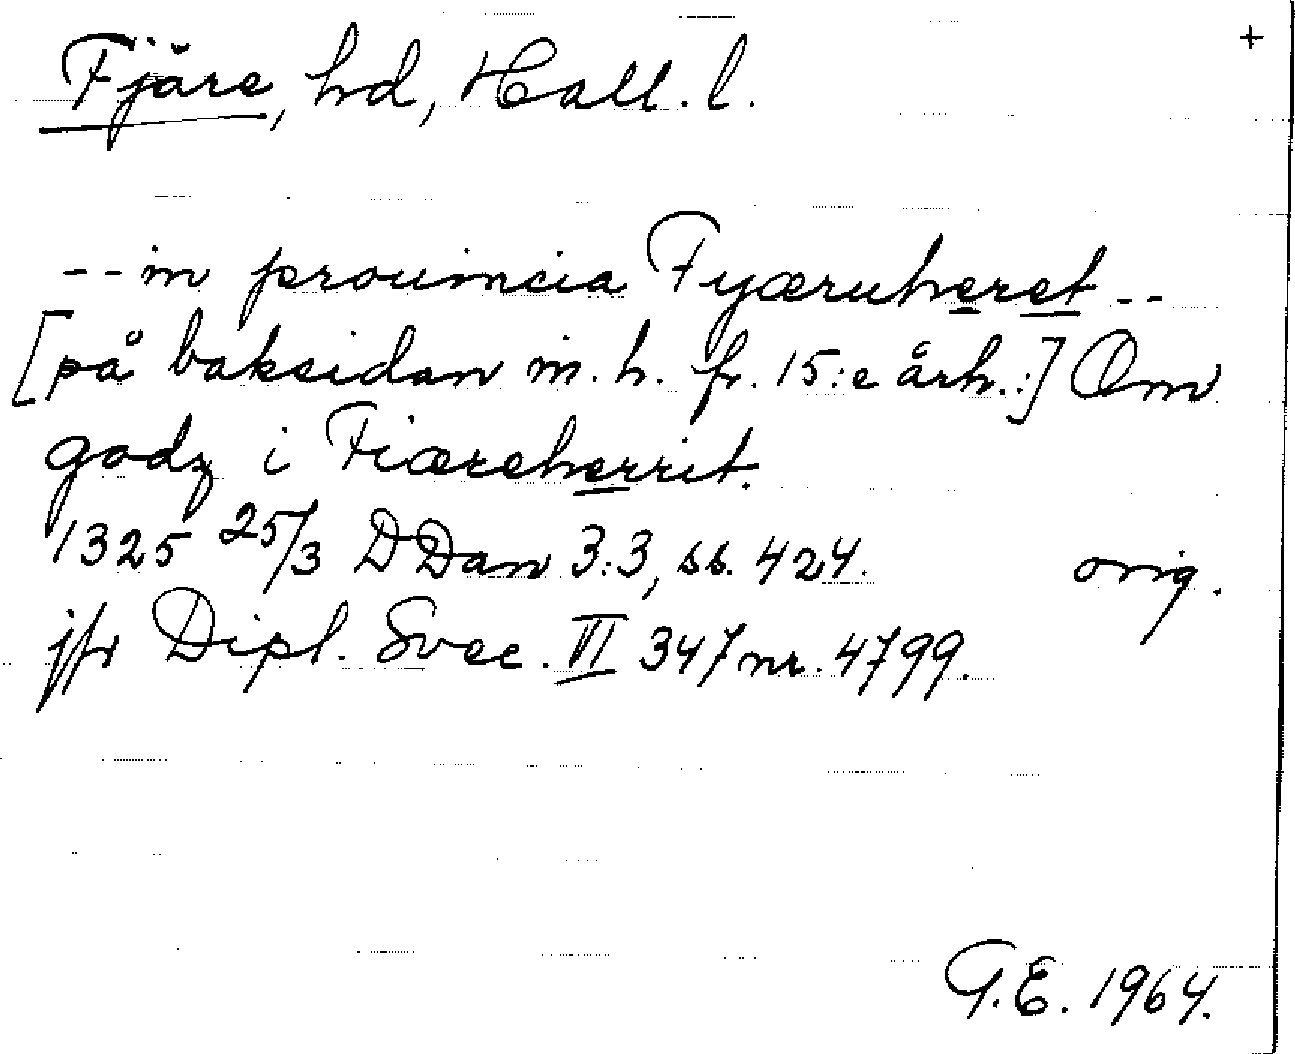 +
Fjäre, hd, Hall. l.
-- in prouincia Fyæruheret --
[på baksidan m. h. fr. 15:e årh.:] Om
godz i Fiæreherrit.
1325 25/3 DDan 3:3, ss. 424. orig.
jfr Dipl. Svec. VI 347 nr. 4799.
G.E. 1964.